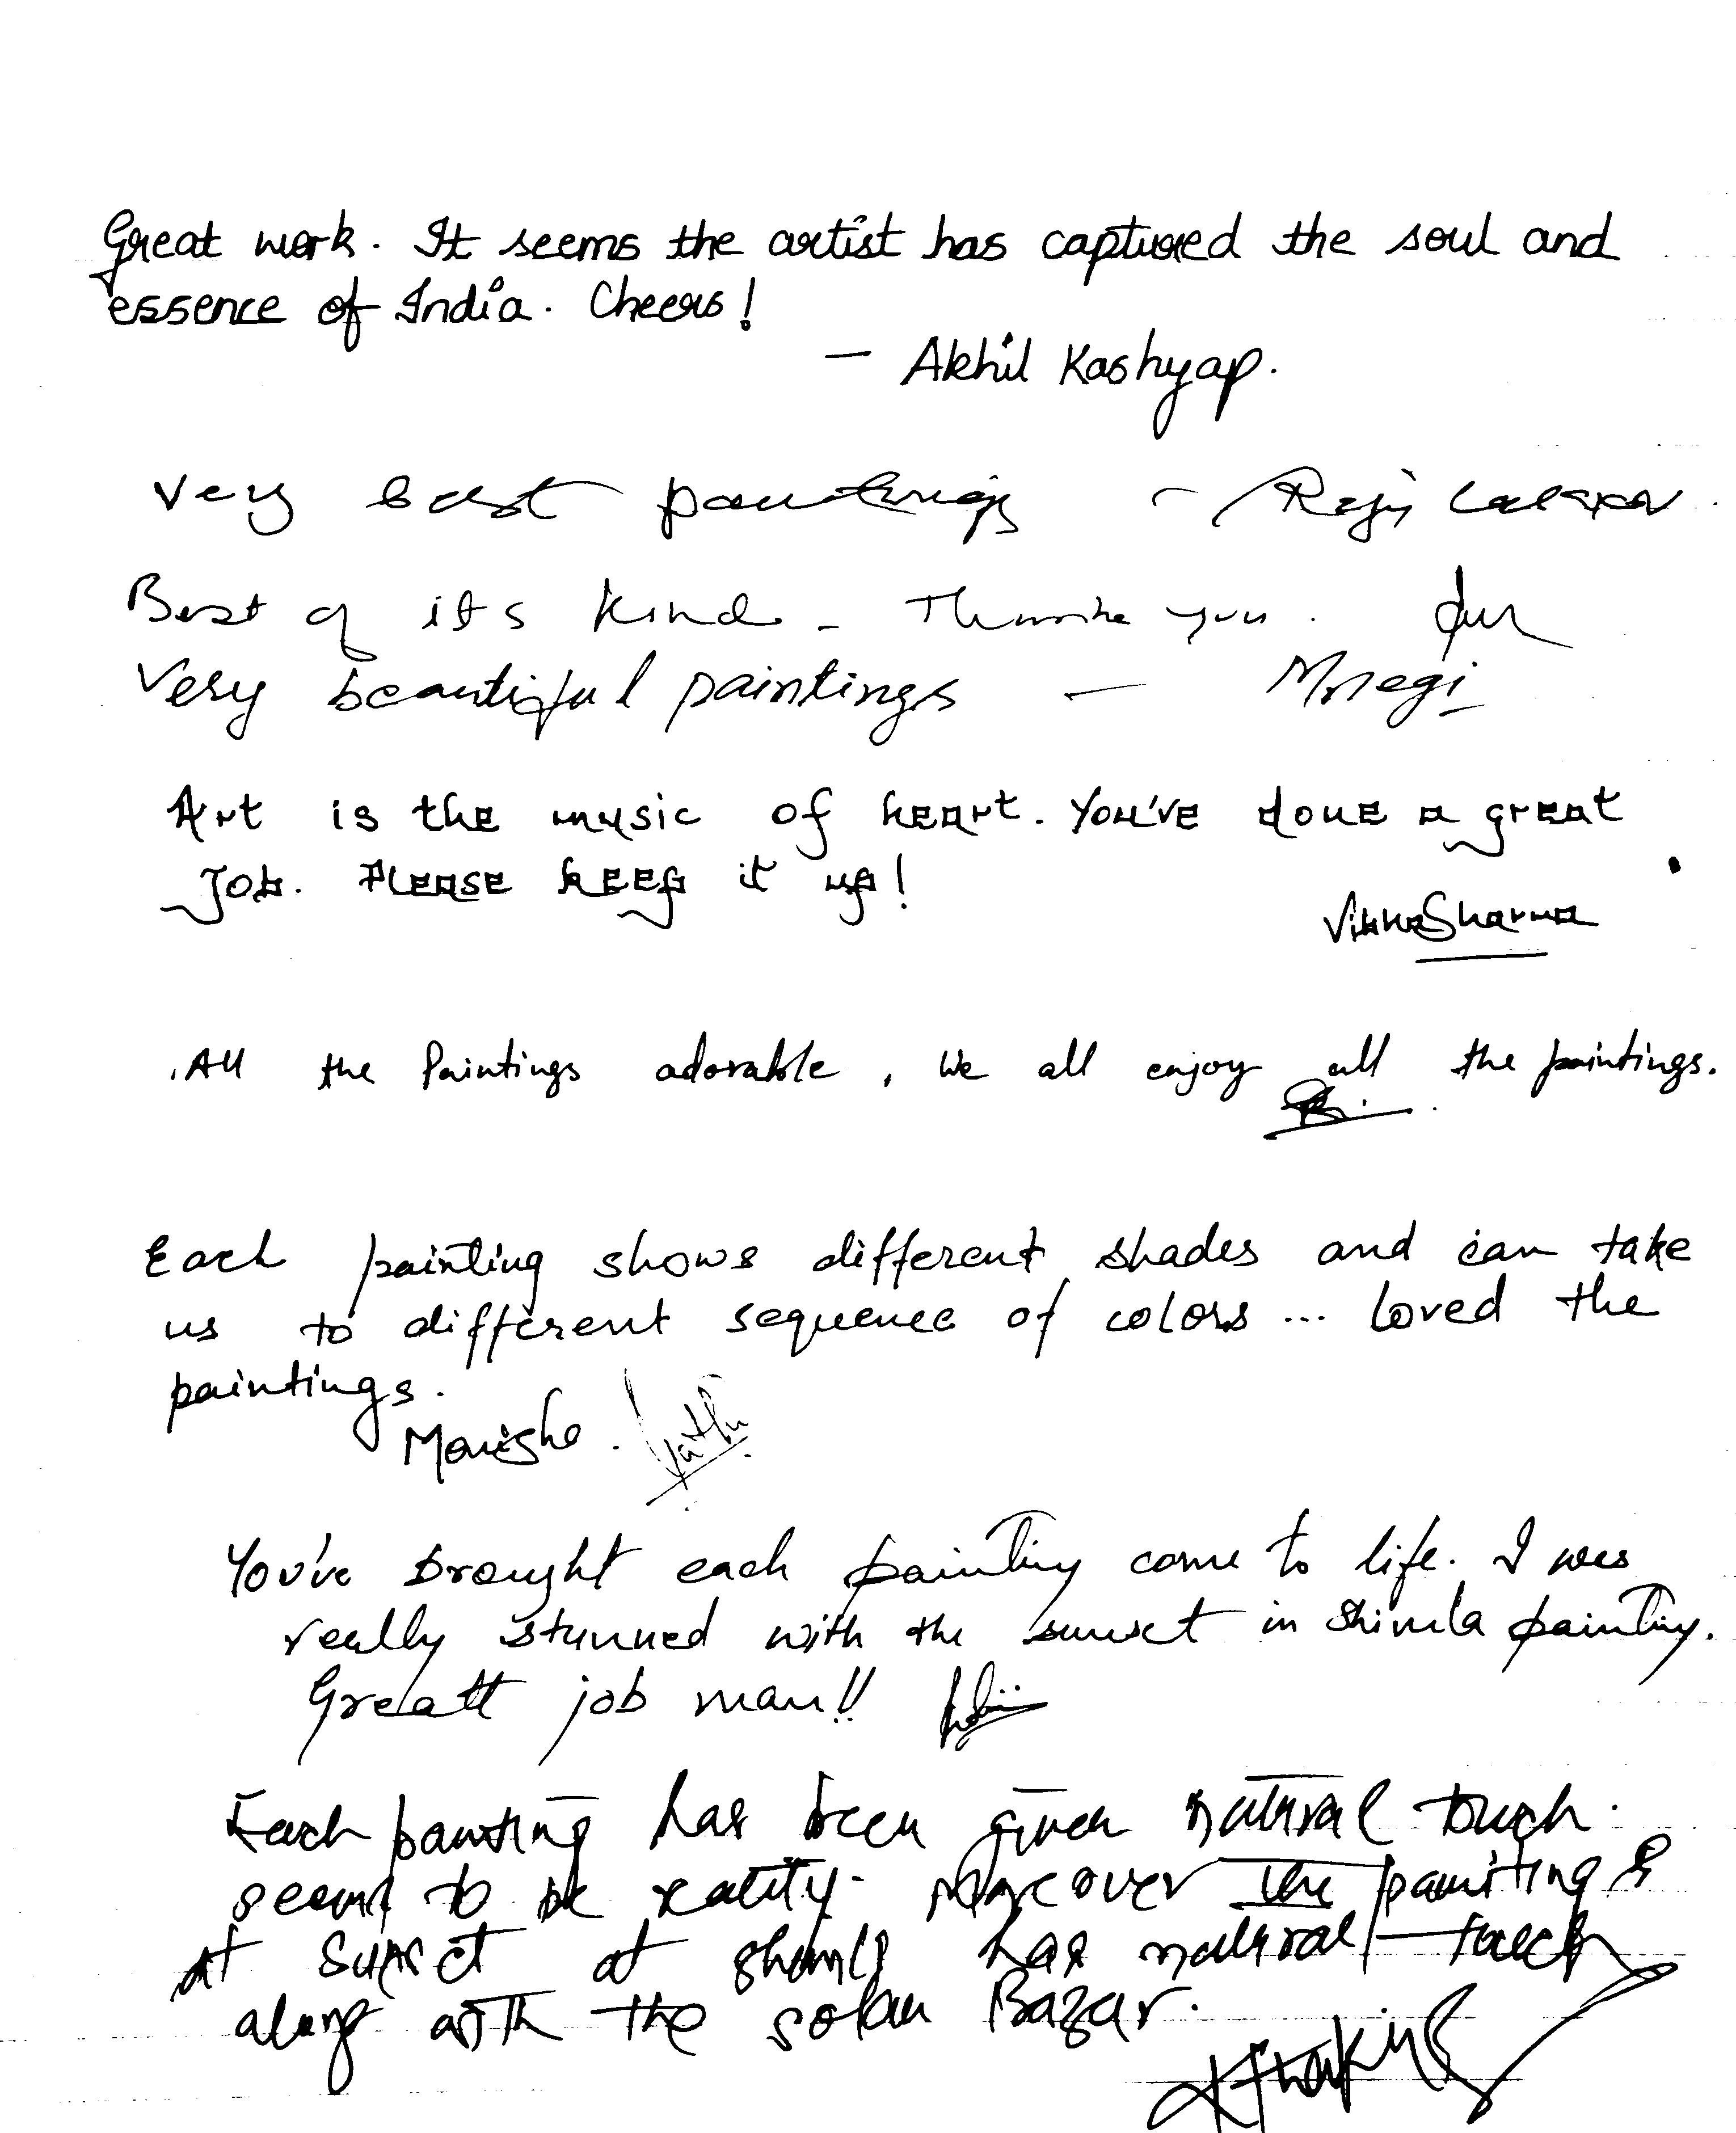 Great work. It seems the artist has captured the soul and
essence of India. Cheers!
— Akhil Kashyap.
Very best paintings -
Best of its kind - Thanks you.
Very beautiful paintings — Mnegi
Art is the music of heart. You've done a great
Job. Please keep it up!
Vibha Sharma
All the Paintings adorable, We all enjoy all the paintings.
Each painting shows different shades and can take
us to different sequence of colors ... loved the
paintings.
Manisha.
You've brought each painting come to life. I was
really stunned with the sunset in Shimla painting.
Greatt job man!!
Each painting has been given natural touch.
seems to be reality. Moreover the painting &
at Sunset at Shimla has natural touch
along with the solan Bazar.
Thakur